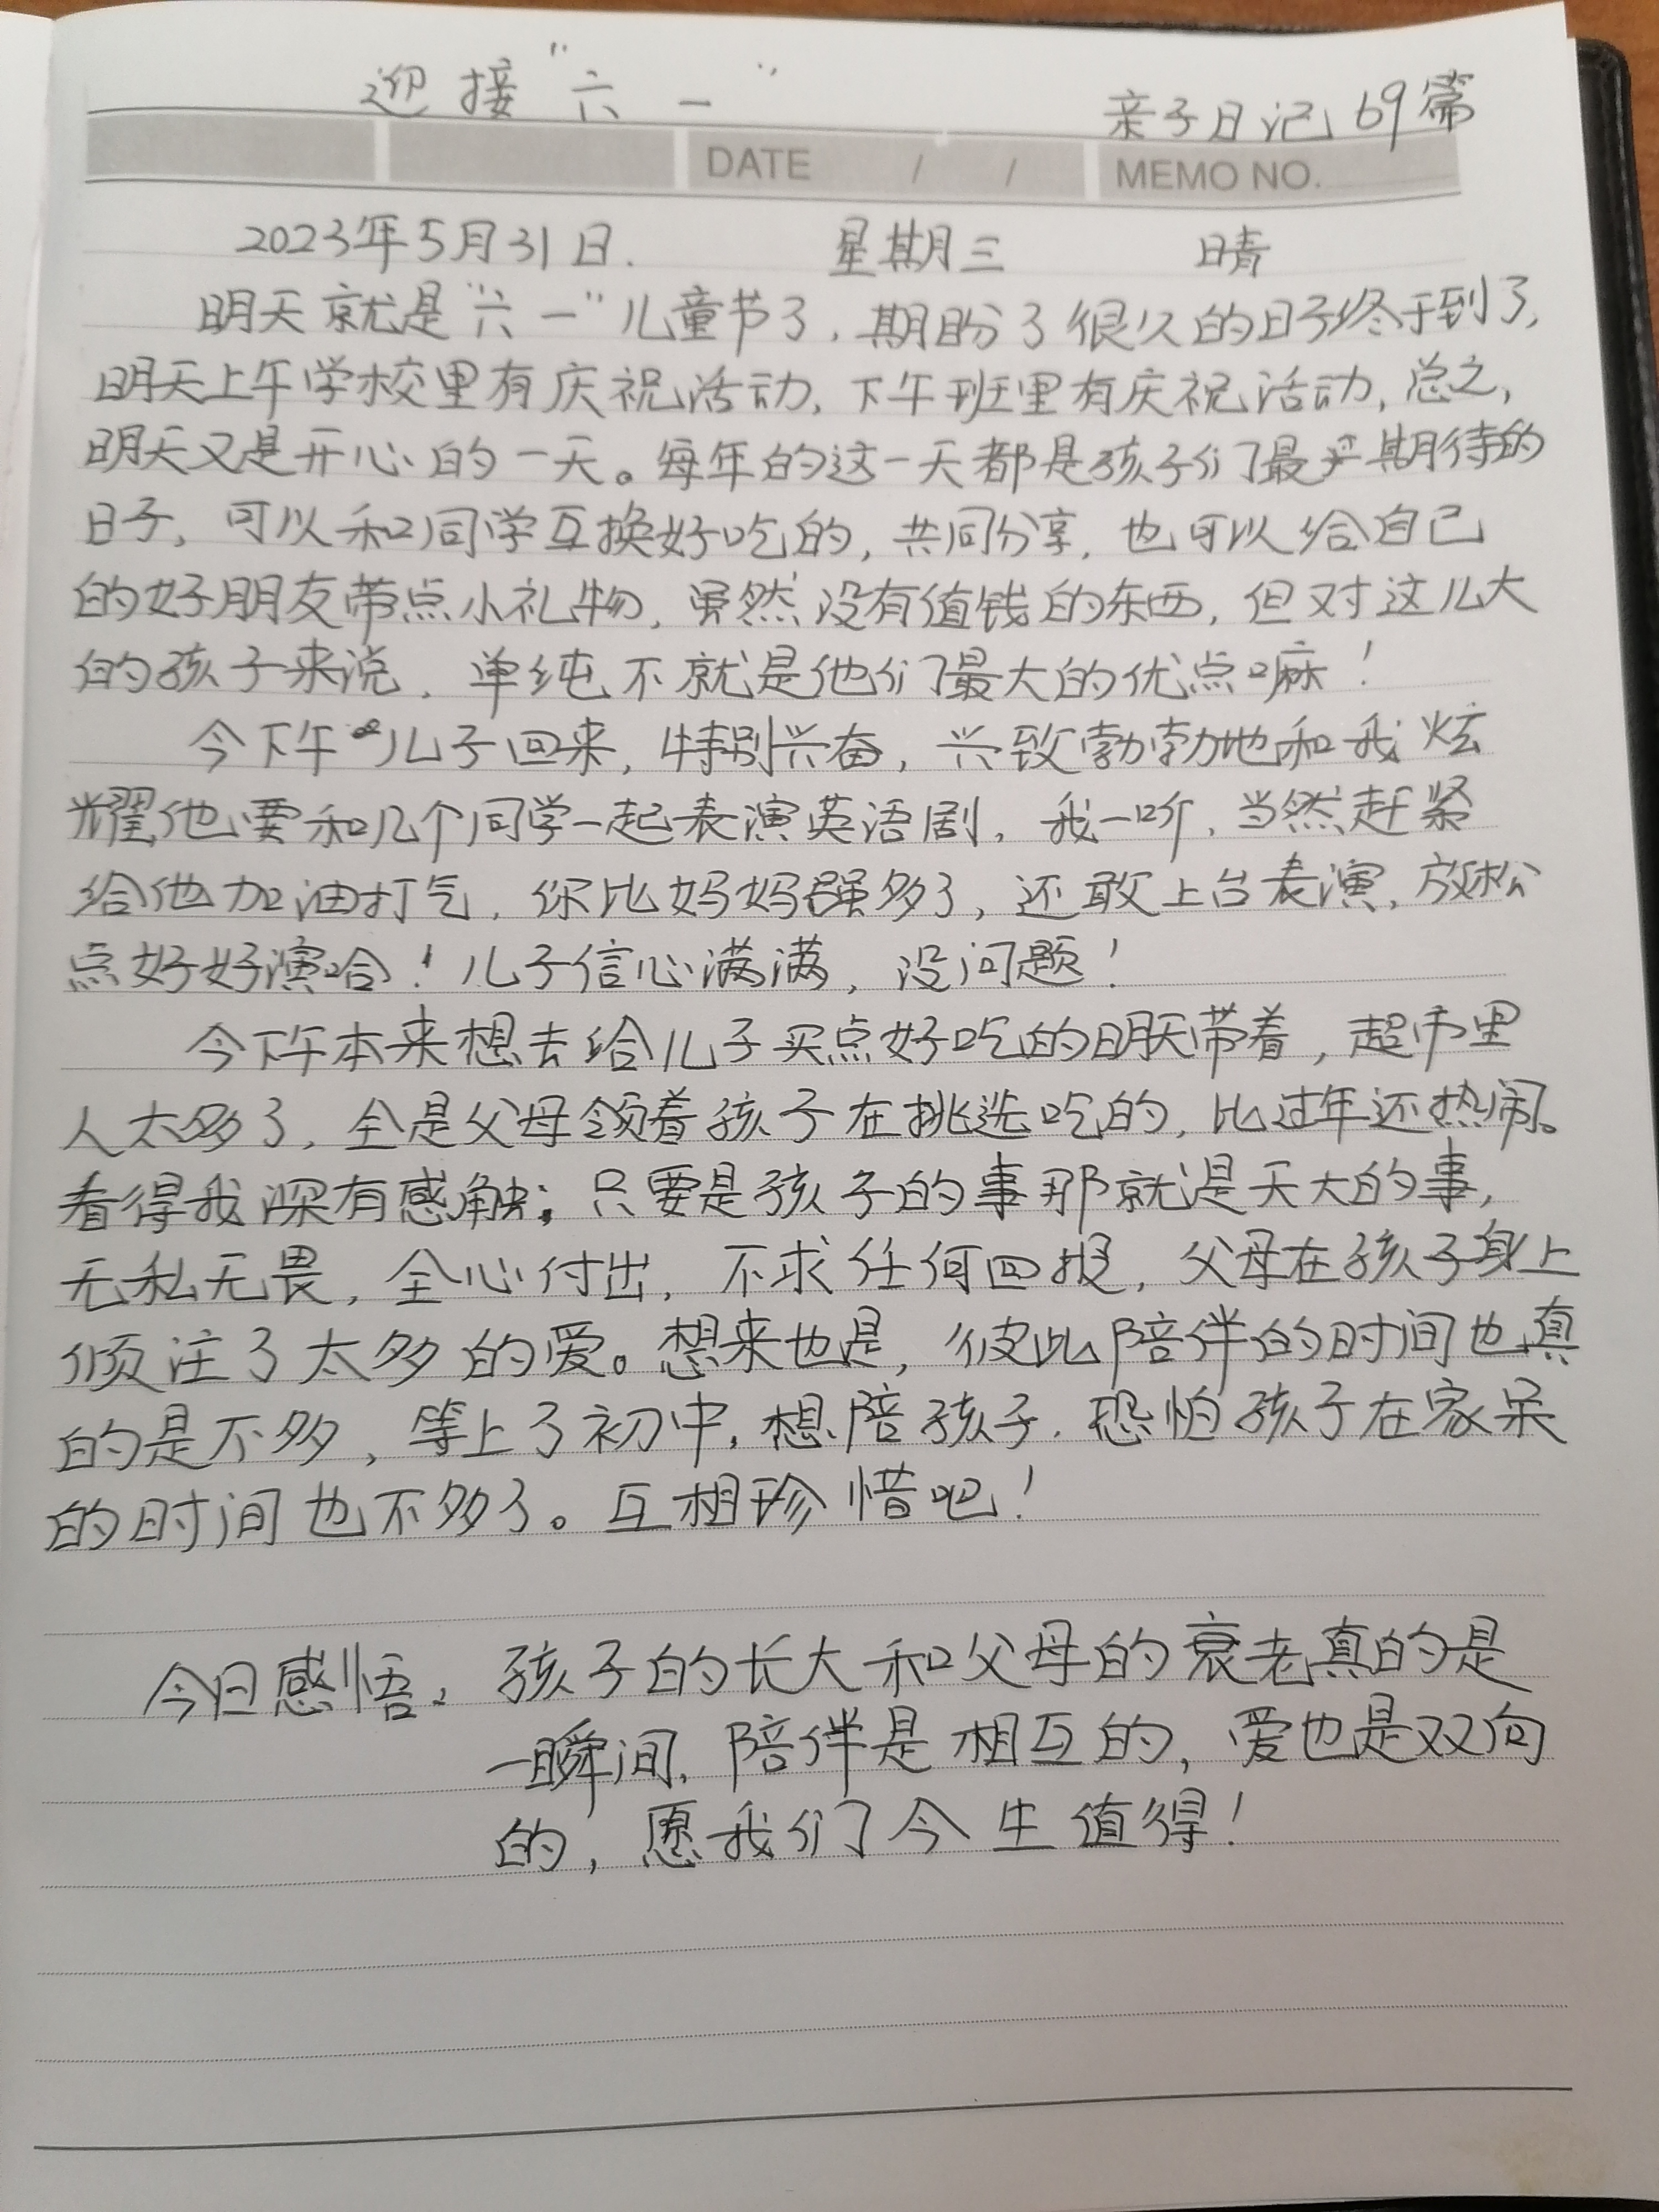 迎接“六一”
亲子日记69篇
DATE / /
MEMO NO.
2023年5月31日. 星期三 晴
明天就是“六一”儿童节了,期盼了很久的日子终于到了,
明天上午学校里有庆祝活动,下午班里有庆祝活动,总之,
明天又是开心的一天。每年的这一天都是孩子们最期待的
日子,可以和同学互换好吃的,共同分享,也可以给自己
的好朋友带点小礼物,虽然没有值钱的东西,但对这么大
的孩子来说,单纯不就是他们最大的优点嘛!
今下午儿子回来,特别兴奋,兴致勃勃地和我炫
耀他要和几个同学一起表演英语剧,我一听,当然赶紧
给他加油打气,你比妈妈强多了,还敢上台表演,放松
点好好演哈!儿子信心满满,没问题!
今下午本来想去给儿子买点好吃的明天带着,超市里
人太多了,全是父母领着孩子在挑选吃的,比过年还热闹。
看得我深有感触;只要是孩子的事那就是天大的事,
无私无畏,全心付出,不求任何回报,父母在孩子身上
倾注了太多的爱。想来也是,彼此陪伴的时间也真
的是不多,等上了初中,想陪孩子,恐怕孩子在家呆
的时间也不多了。互相珍惜吧!
今日感悟:孩子的长大和父母的衰老真的是
一瞬间,陪伴是相互的,爱也是双向
的,愿我们今生值得!